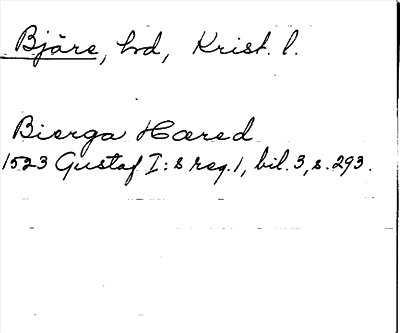 Bjäre, hd, Krist. l.
Bierga Hæred
1523 Gustaf I:s reg. 1, bil. 3, s. 293.